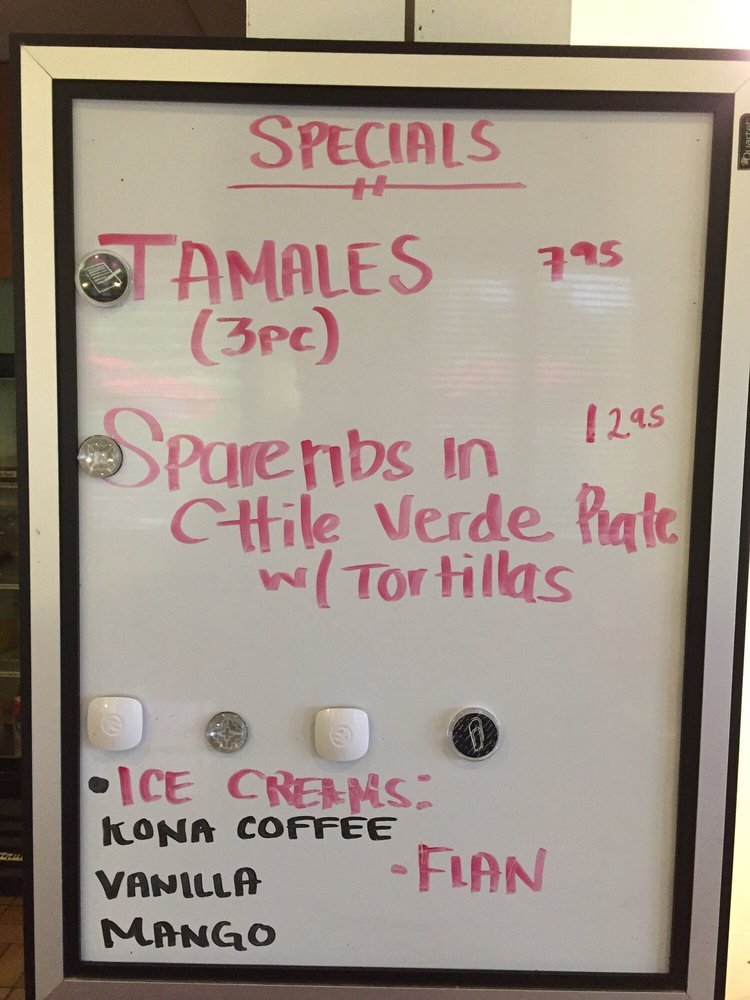 SPECIALS
TAMALES 795
(3PC)
Spareribs in 1295
CHile Verde Plate
w/ Tortillas
•ICE CREAMS:
KONA COFFEE
VANILLA
-FLAN
MANGO
Quartet